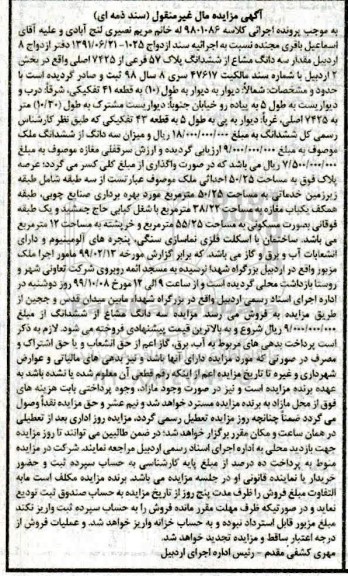 آگهی مزایده مال غیرمنقول (سند ذمه ای)
به موجب پرونده اجرائی کلاسه ۹۸۰۱۰۸۶ له خانم مریم نصیری لنج آبادی و علیه آقای
اسماعیل باقری مجنده نسبت به اجرائیه سند ازدواج ۱۰۲۵-۱۳۹۱/۰۶/۲۱ دفتر ازدواج ۸
اردبیل مقدار سه دانگ مشاع از ششدانگ پلاک ۵۷ فرعی از ۷۴۲۵ اصلی واقع در بخش
۲ اردبیل با شماره سند مالکیت ۴۷۶۱۷ سری ۸ سال ۹۸ ثبت و صادر گردیده است با
حدود و مشخصات: شمالاً: دیوار به دیوار به طول (۱۰) به قطعه ۴۱ تفکیکی، شرقاً: درب و
دیواریست به طول ۵ به پیاده رو خیابان جنوباً: دیواریست مشترک به طول (۱۰/۳۰) متر
به ۷۴۲۵ اصلی، غرباً: دیوار به پی به طول ۵ به قطعه ۴۳ تفکیکی که طبق نظر کارشناس
رسمی کل ششدانگ به مبلغ ۱۸/۰۰۰/۰۰۰/۰۰۰ ریال و میزان سه دانگ از ششدانگ ملک
موصوف به مبلغ ۹/۰۰۰/۰۰۰/۰۰۰ ارزیابی گردیده و ارزش سرقفلی مغازه موصوف به مبلغ
۷/۵۰۰/۰۰۰/۰۰۰ ریال می باشد که در صورت واگذاری از مبلغ کلی کسر می گردد؛ عرصه
پلاک فوق به مساحت ۵۰/۲۵ احداثی ملک موصوف عبارتست از سه طبقه شامل طبقه
زیرزمین خدماتی به مساحت ۵۰/۲۵ مترمربع مورد بهره برداری صنایع چوبی، طبقه
همکف یکباب مغازه به مساحت ۳۸/۲۲ مترمربع با شغل کبابی حاج جمشید و یک طبقه
فوقانی بصورت مسکونی به مساحت ۵۵/۲۵ مترمربع و خرپشته به مساحت ۱۲ مترمربع
می باشد. ساختمان با اسکلت فلزی نماسازی سنگی، پنجره های آلومینیوم و دارای
انشعابات آب و برق و گاز می باشد. که برابر گزارش مورخه ۹۹/۰۲/۱۳ مامور اجرا ملک
مزبور واقع در اردبیل بزرگراه شهدا نرسیده به مسجد ائمه روبروی شرکت تعاونی شهر و
روستا بازداشت محلی گردیده است و از ساعت ۹ الی ۱۲ مورخ ۹۹/۱۰/۰۸ روز دوشنبه در
اداره اجرای اسناد رسمی اردبیل واقع در بزرگراه شهدا، مابین میدان قدس و ججین از
طریق مزایده به فروش می رسد. مزایده سه دانگ مشاع از ششدانگ از مبلغ
۹/۰۰۰/۰۰۰/۰۰۰ ریال شروع و به بالاترین قیمت پیشنهادی فروخته می شود. لازم به ذکر
است پرداخت بدهی های مربوط به آب، برق، گاز اعم از حق انشعاب و یا حق اشتراک و
مصرف در صورتی که مورد مزایده دارای آنها باشد و نیز بدهی های مالیاتی و عوارض
شهرداری و غیره تا تاریخ مزایده اعم از اینکه رقم قطعی آن معلوم شده یا نشده باشد به
عهده برنده مزایده است و نیز در صورت وجود مازاد، وجوه پرداختی بابت هزینه های
فوق از محل مازاد به برنده مزایده مسترد خواهد شد و نیم عشر و حق مزایده نقداً وصول
می گردد ضمناً چنانچه روز مزایده تعطیل رسمی گردد، مزایده روز اداری بعد از تعطیلی
در همان ساعت و مکان مقرر برگزار خواهد شد؛ در ضمن طالبین می توانند تا روز مزایده
جهت بازدید محلی به اداره اجرای اسناد رسمی اردبیل مراجعه نمایند. شرکت در مزایده
منوط به پرداخت ده درصد از مبلغ پایه کارشناسی به حساب سپرده ثبت و حضور
خریدار یا نماینده قانونی او در جلسه مزایده می باشد. برنده مزایده مکلف است مابه
التفاوت مبلغ فروش را ظرف مدت پنج روز از تاریخ مزایده به حساب صندوق ثبت تودیع
نماید و در صورتیکه ظرف مهلت مقرر مانده فروش را به حساب سپرده ثبت واریز نکند
مبلغ مزبور قابل استرداد نبوده و به حساب خزانه واریز خواهد شد. و عملیات فروش از
درجه اعتبار ساقط و مزایده تجدید خواهد شد.
مهری کشفی مقدم - رئیس اداره اجرای اردبیل